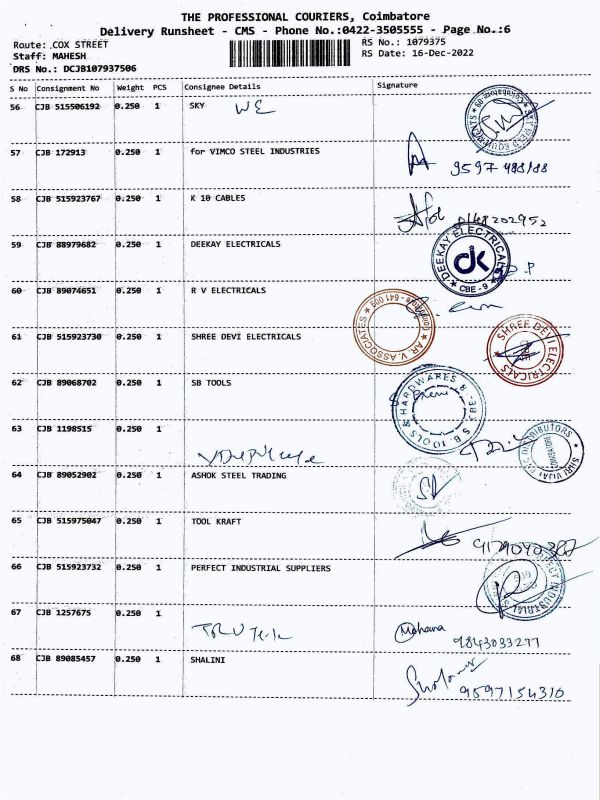 THE PROFESSIONAL COURIERS, Coimbatore
Delivery Runsheet - CMS - Phone No.:0422-3505555 - Page No.:6
Route: COX STREET
RS No.: 1079375
Staff: MAHESH
RS Date: 16-Dec-2022
DRS No.: DCJB107937506
S No Consignment No Weight PCS Consignee Details Signature
56 CJB 515506192 0.250 1 SKY WE
57 CJB 172913 0.250 1 for VIMCO STEEL INDUSTRIES
58 CJB 515923767 0.250 1 K 10 CABLES
59 CJB 88979682 0.250 1 DEEKAY ELECTRICALS
DEEKAY ELECTRICALS
dk
CBE - 9
60 CJB 89074651 0.250 1 R V ELECTRICALS
AR. V. ASSOCIATES
61 CJB 515923730 0.250 1 SHREE DEVI ELECTRICALS
SHREE DEVI ELECTRICALS
62 CJB 89068702 0.250 1 SB TOOLS
S.B. TOOLS & HARDWARES
63 CJB 1198515 0.250 1
64 CJB 89052902 0.250 1 ASHOK STEEL TRADING
65 CJB 515975047 0.250 1 TOOL KRAFT
66 CJB 515923732 0.250 1 PERFECT INDUSTRIAL SUPPLIERS
67 CJB 1257675 0.250 1
9843033277
68 CJB 89085457 0.250 1 SHALINI
9597154310